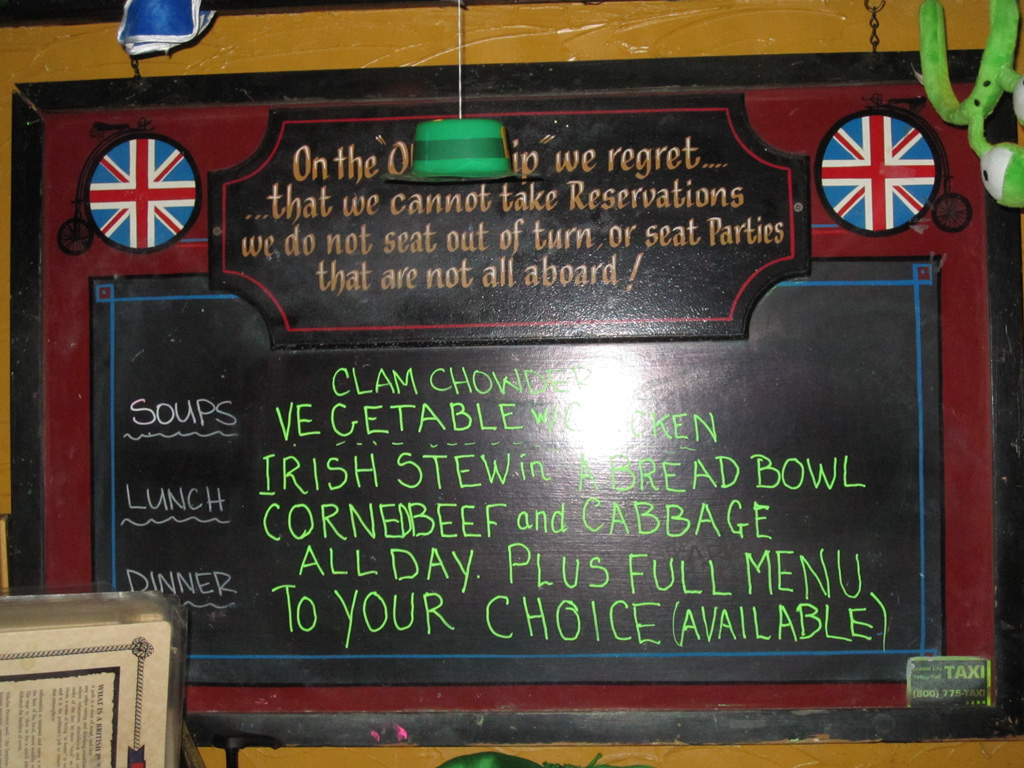 On the we regret....
...that we cannot take Reservations
we do not seat out of turn, or seat Parties
that are not all aboard!
CLAM CHOWDER
SOUPS
VEGETABLE W/ CHICKEN
IRISH STEW in A BREAD BOWL
LUNCH
CORNED BEEF and CABBAGE
ALL DAY. PLUS FULL MENU
DINNER
TO YOUR CHOICE (AVAILABLE)
TAXI
(800) 775-TAXI
WHAT IS A BRITISH